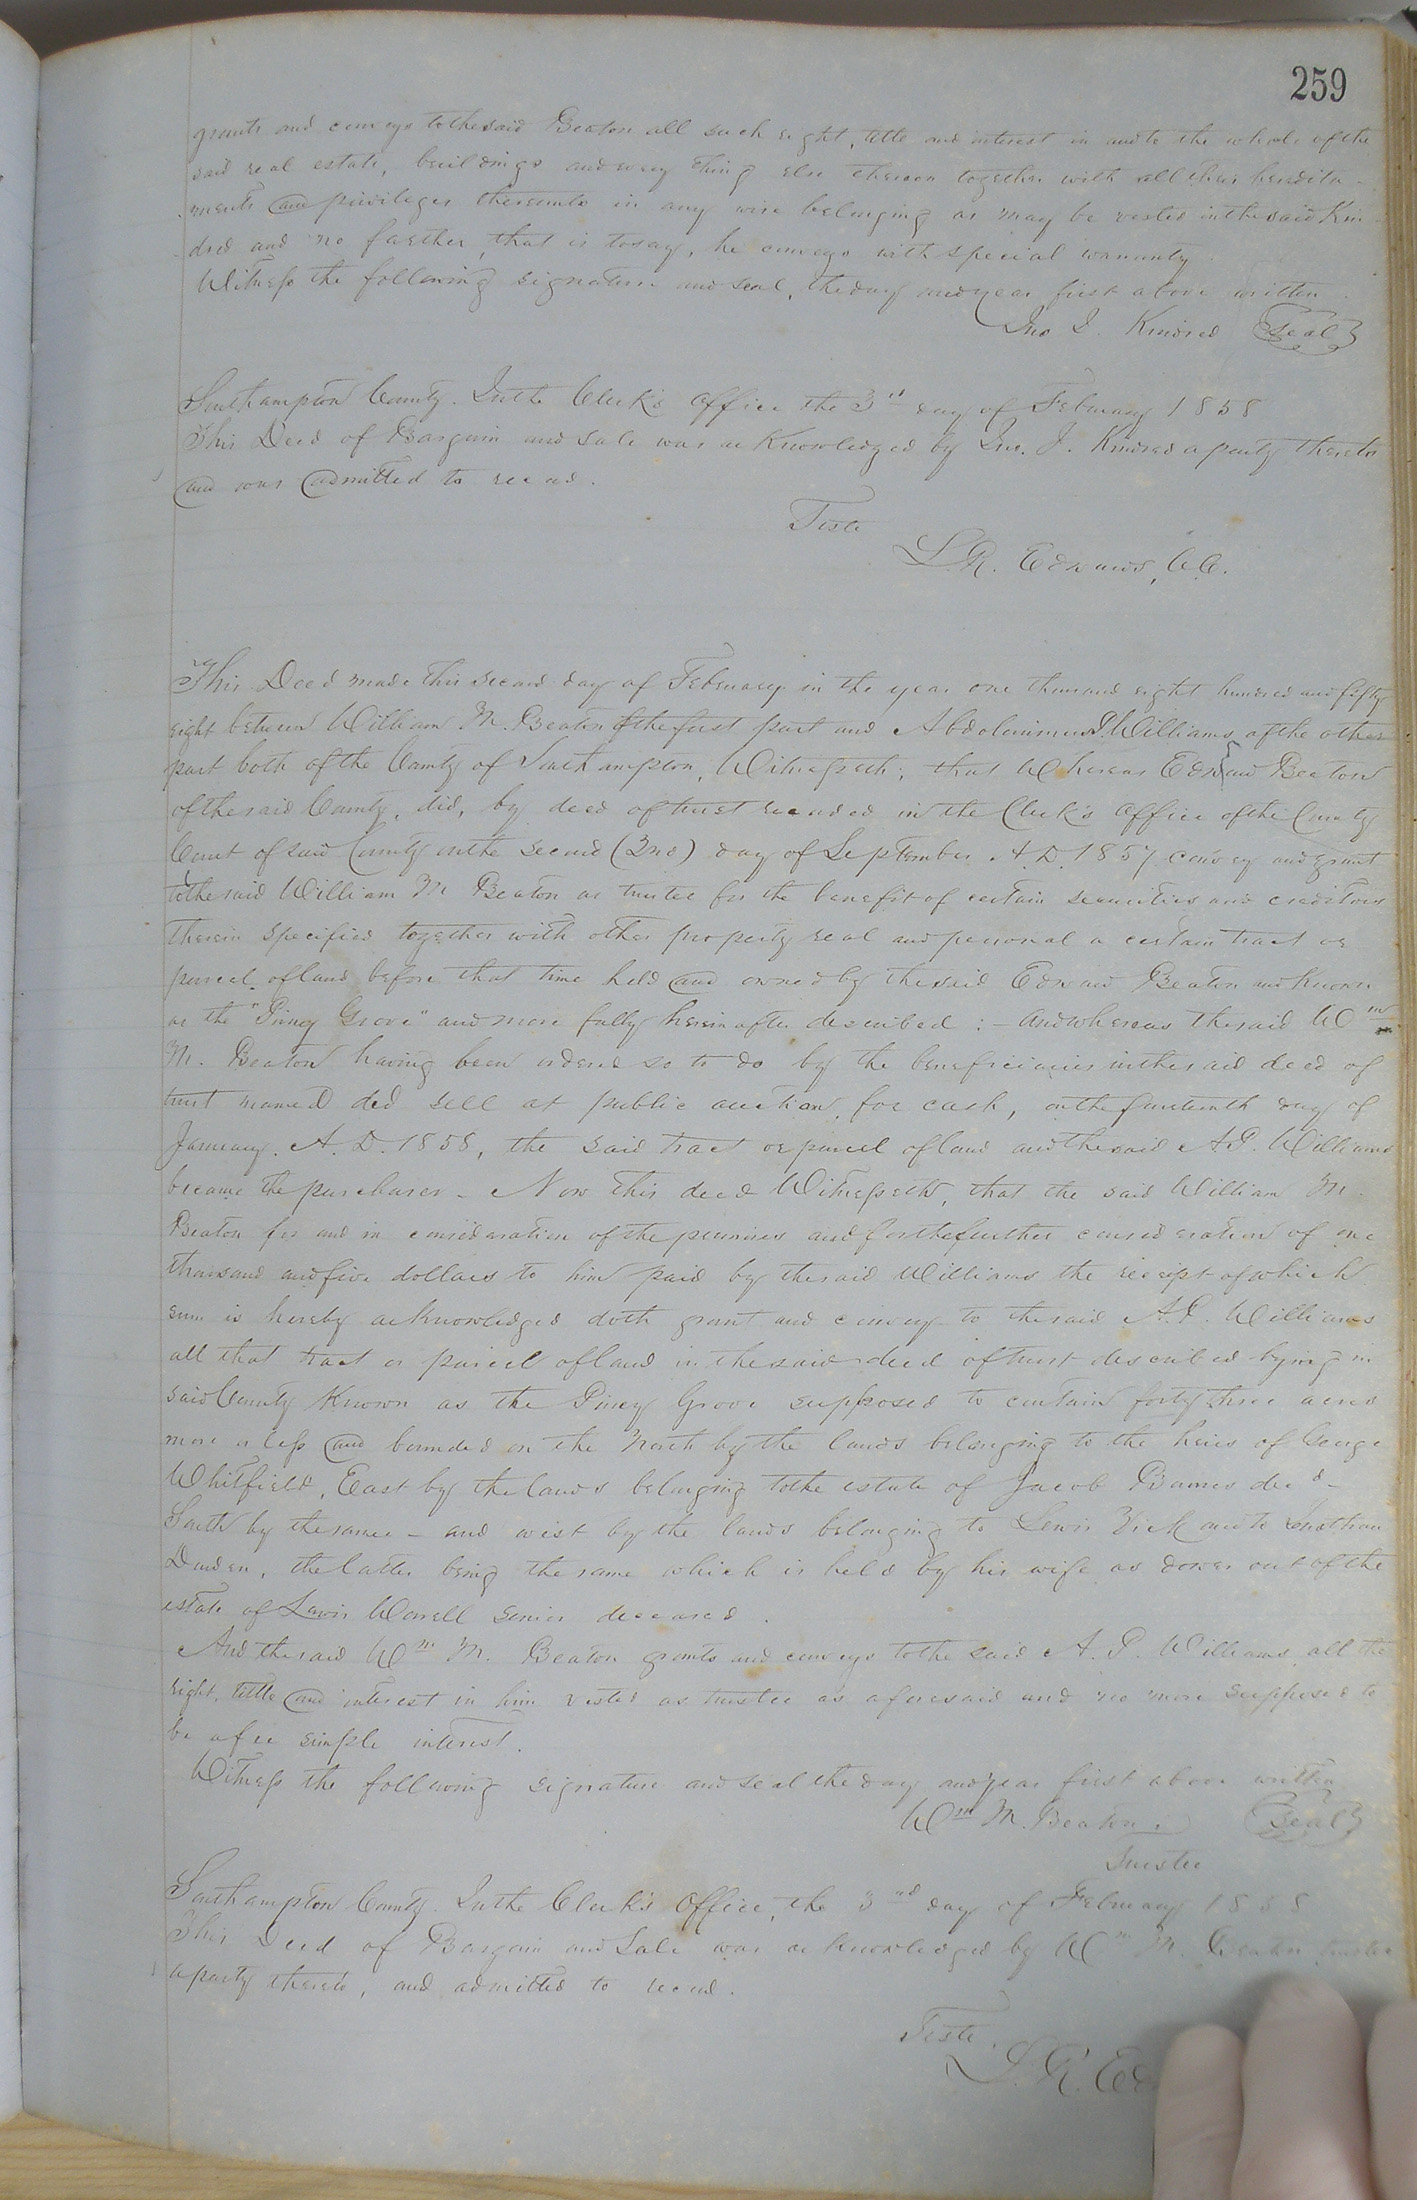 259
grants and conveys to the said Beaton all such right, title and interest in and to the whole of the
said real estate, buildings and every thing else thereon together with all their heredita-
ments and privileges thereunto in any wise belonging as may be vested in the said Kin
dred and no farther, that is to say, he conveys with special warranty.
Witness the following signature and seal, the day and year first above written.
Jno J. Kindred Seal
Southampton County. In the Clerk's Office the 3rd day of February 1858
This Deed of Bargain and Sale was acknowledged by Jno. J. Kindred a party thereto
and was admitted to record.
Teste
L. R. Edwards, C.C.
This Deed made this second day of February in the year one thousand eight hundred and fifty
eight between William M. Beaton of the first part and P. Williams of the other
part both of the County of Southampton, Witnesseth; that Whereas Edward Beaton
of the said County, did, by deed of trust recorded in the Clerk's Office of the County
Court of said County on the second (2nd) day of September A.D. 1857 convey and grant
to the said William M Beaton as trustee for the benefit of certain securities and creditors
therein specified together with other property real and personal a certain tract or
parcel of land before that time held and owned by the said Edward Beaton and known
as the "Piney Grove" and more fully herein after described: - And whereas the said Wm
M. Beaton having been ordered so to do by the beneficiaries in the said deed of
trust named did sell at public auction, for cash, on the day of
January. A. D. 1858, the said tract or parcel of land and the said A P. Williams
became the purchaser - Now this deed Witnesseth, that the said William M.
Beaton for and in consideration of the premises and for the further consideration of one
thousand and five dollars to him paid by the said Williams the receipt of which
sum is hereby acknowledged doth grant and convey to the said A. P. Williams
all that tract or parcel of land in the said deed of trust described lying in
said County Known as the Piney Grove supposed to contain forty three acres
more or less and bounded on the North by the lands belonging to the heirs of George
Whitfield, East by the lands belonging to the estate of Jacob Barnes decd -
South by the same - and west by the lands belonging to Lewis Vick and to Jonathan
Darden, the latter being the same which is held by his wife as dower out of the
estate of Lewis Worrell Senior deceased.
And the said Wm M. Beaton grants and conveys to the said A. P. Williams all the
right, title and interest in him vested as trustee as aforesaid and no more supposed to
be a fee simple interest.
Witness the following signature and seal the day and year first above written
Wm M. Beaton. Seal
Trustee
Southampton County. In the Clerk's Office, the 3rd day of February 1858
This Deed of Bargain and Sale was acknowledged by Wm M. Beaton trustee
a party thereto, and admitted to record.
Teste.
L. R. Ed